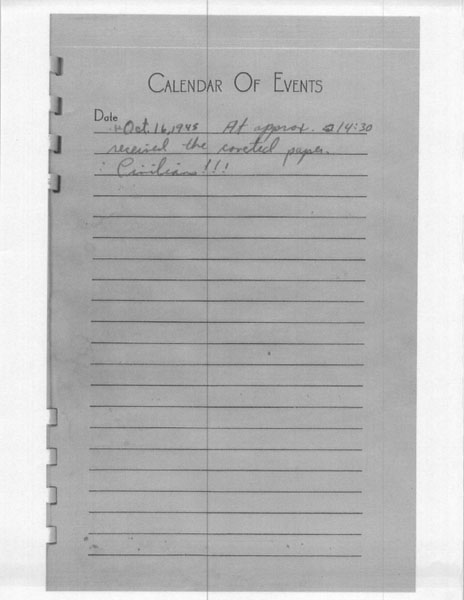 CALENDAR OF EVENTS
Date
Oct. 16, 1945 At approx. 14:30
received the coveted paper.
Civilian!!!